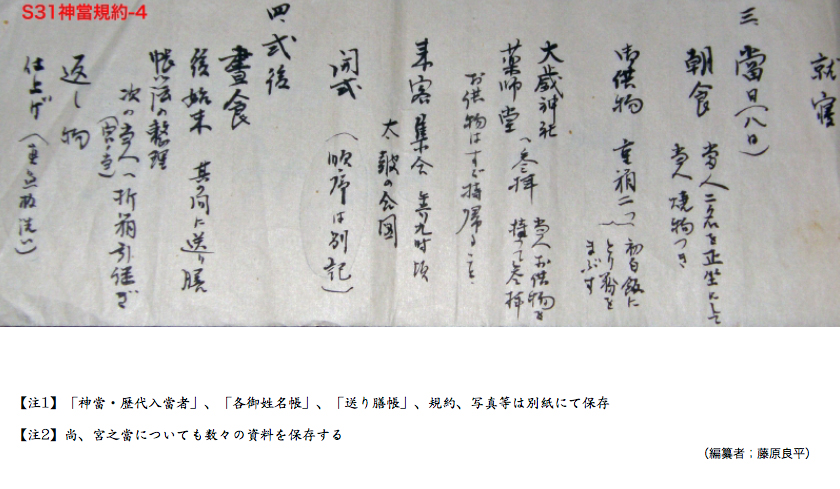 S31神當規約-4
就寝
三、當日（八日）
朝食 當人二名を正坐にして
當人焼物つき
御供物 重箱二つ 初白飯に
とり粉を
まぶす
大歳神社
薬師堂 へ参拝 當人お供物を
持って参拝
お供物はすぐ持帰ること
来客集会 午前九時頃
太鼓の合図
開式 （順序は別記）
四、式後
晝食
後始末 其の間に送り膳
帳簿の整理
次の當人へ折箱引継ぎ
返し物
仕上げ
【注1】「神當・歴代入當者」、「各御姓名帳」、「送り膳帳」、規約、写真等は別紙にて保存
【注2】尚、宮之當についても数々の資料を保存する
（編纂者；藤原良平）